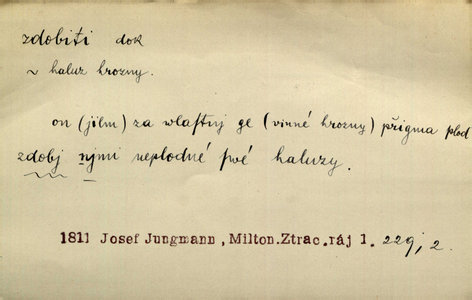 zdobiti dok
~ haluz hrozny.
on (jilm) za wlaſtnj ge (vinné hrozny) přigma plod
zdobj njmi neplodné ſwé haluzy.
1811 Josef Jungmann, Milton.Ztrac.ráj 1. 229, 2.